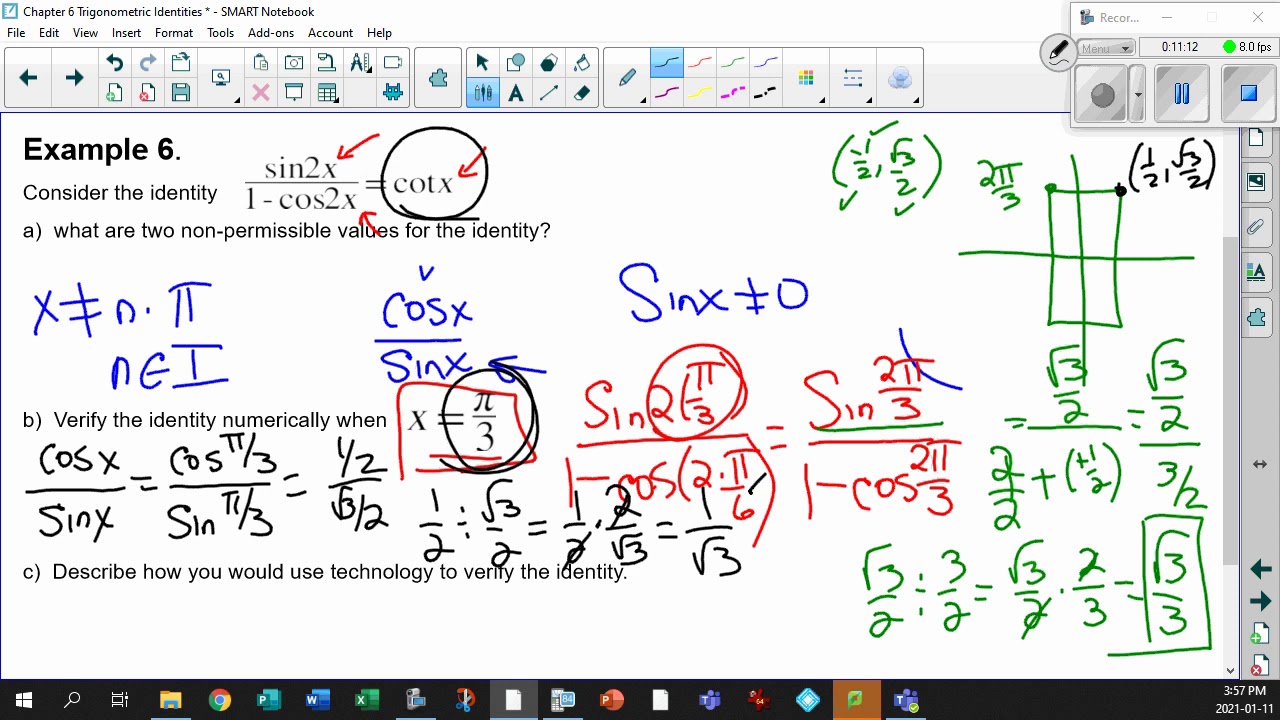 Chapter 6 Trigonometric Identities * - SMART Notebook
File Edit View Insert Format Tools Add-ons Account Help
Recor...
Menu
0:11:12
8.0 fps
Example 6.
Consider the identity sin2x / 1 - cos2x = cotx
a) what are two non-permissible values for the identity?
x ≠ n · π
n ∈ I
cosx / sinx
Sinx ≠ 0
(-1/2, √3/2)
2π/3
(1/2, √3/2)
b) Verify the identity numerically when x = π/3
Sin2(π/3 / 1 - cos(2·π/6) = Sin 2π/3 / 1 - cos 2π/3
= √3/2 / 2/2 + (+1/2) = √3/2 / 3/2
cosx / Sinx = cos π/3 / Sin π/3 = 1/2 / √3/2
1/2 ÷ √3/2 = 1/2 · 2/√3 = 1/√3
√3/2 ÷ 3/2 = √3/2 · 2/3 = √3/3
c) Describe how you would use technology to verify the identity.
3:57 PM
2021-01-11